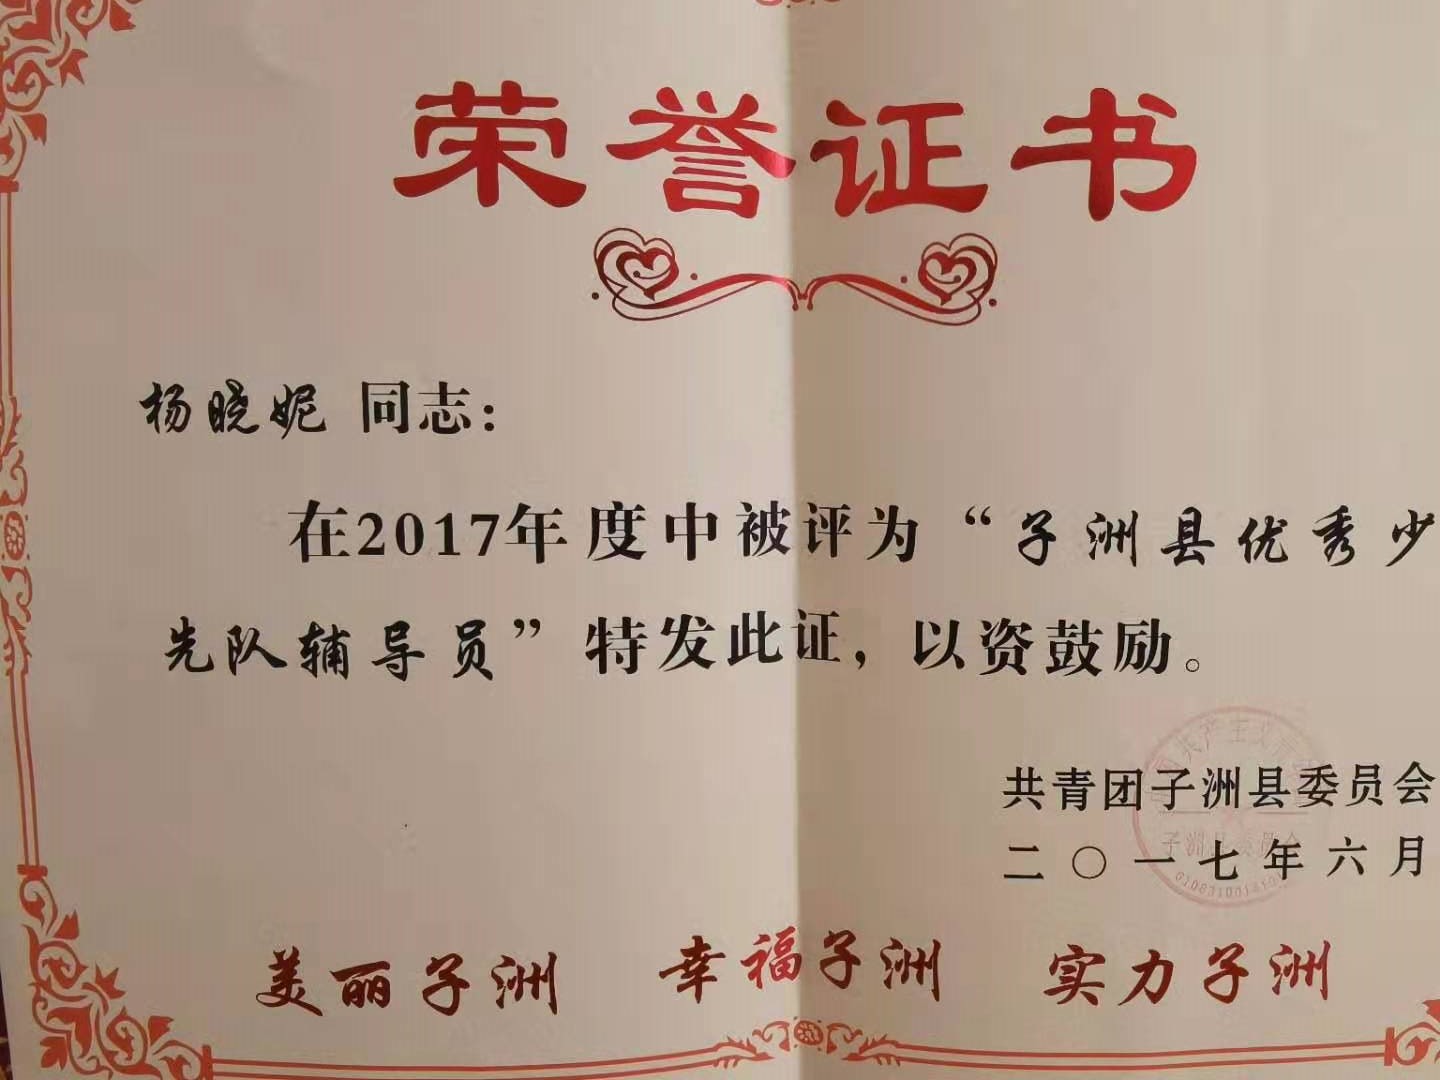 荣誉证书
杨晓妮 同志：
在2017年度中被评为“子洲县优秀少
先队辅导员”特发此证，以资鼓励。
共青团子洲县委员会
二〇一七年六月
美丽子洲 幸福子洲 实力子洲